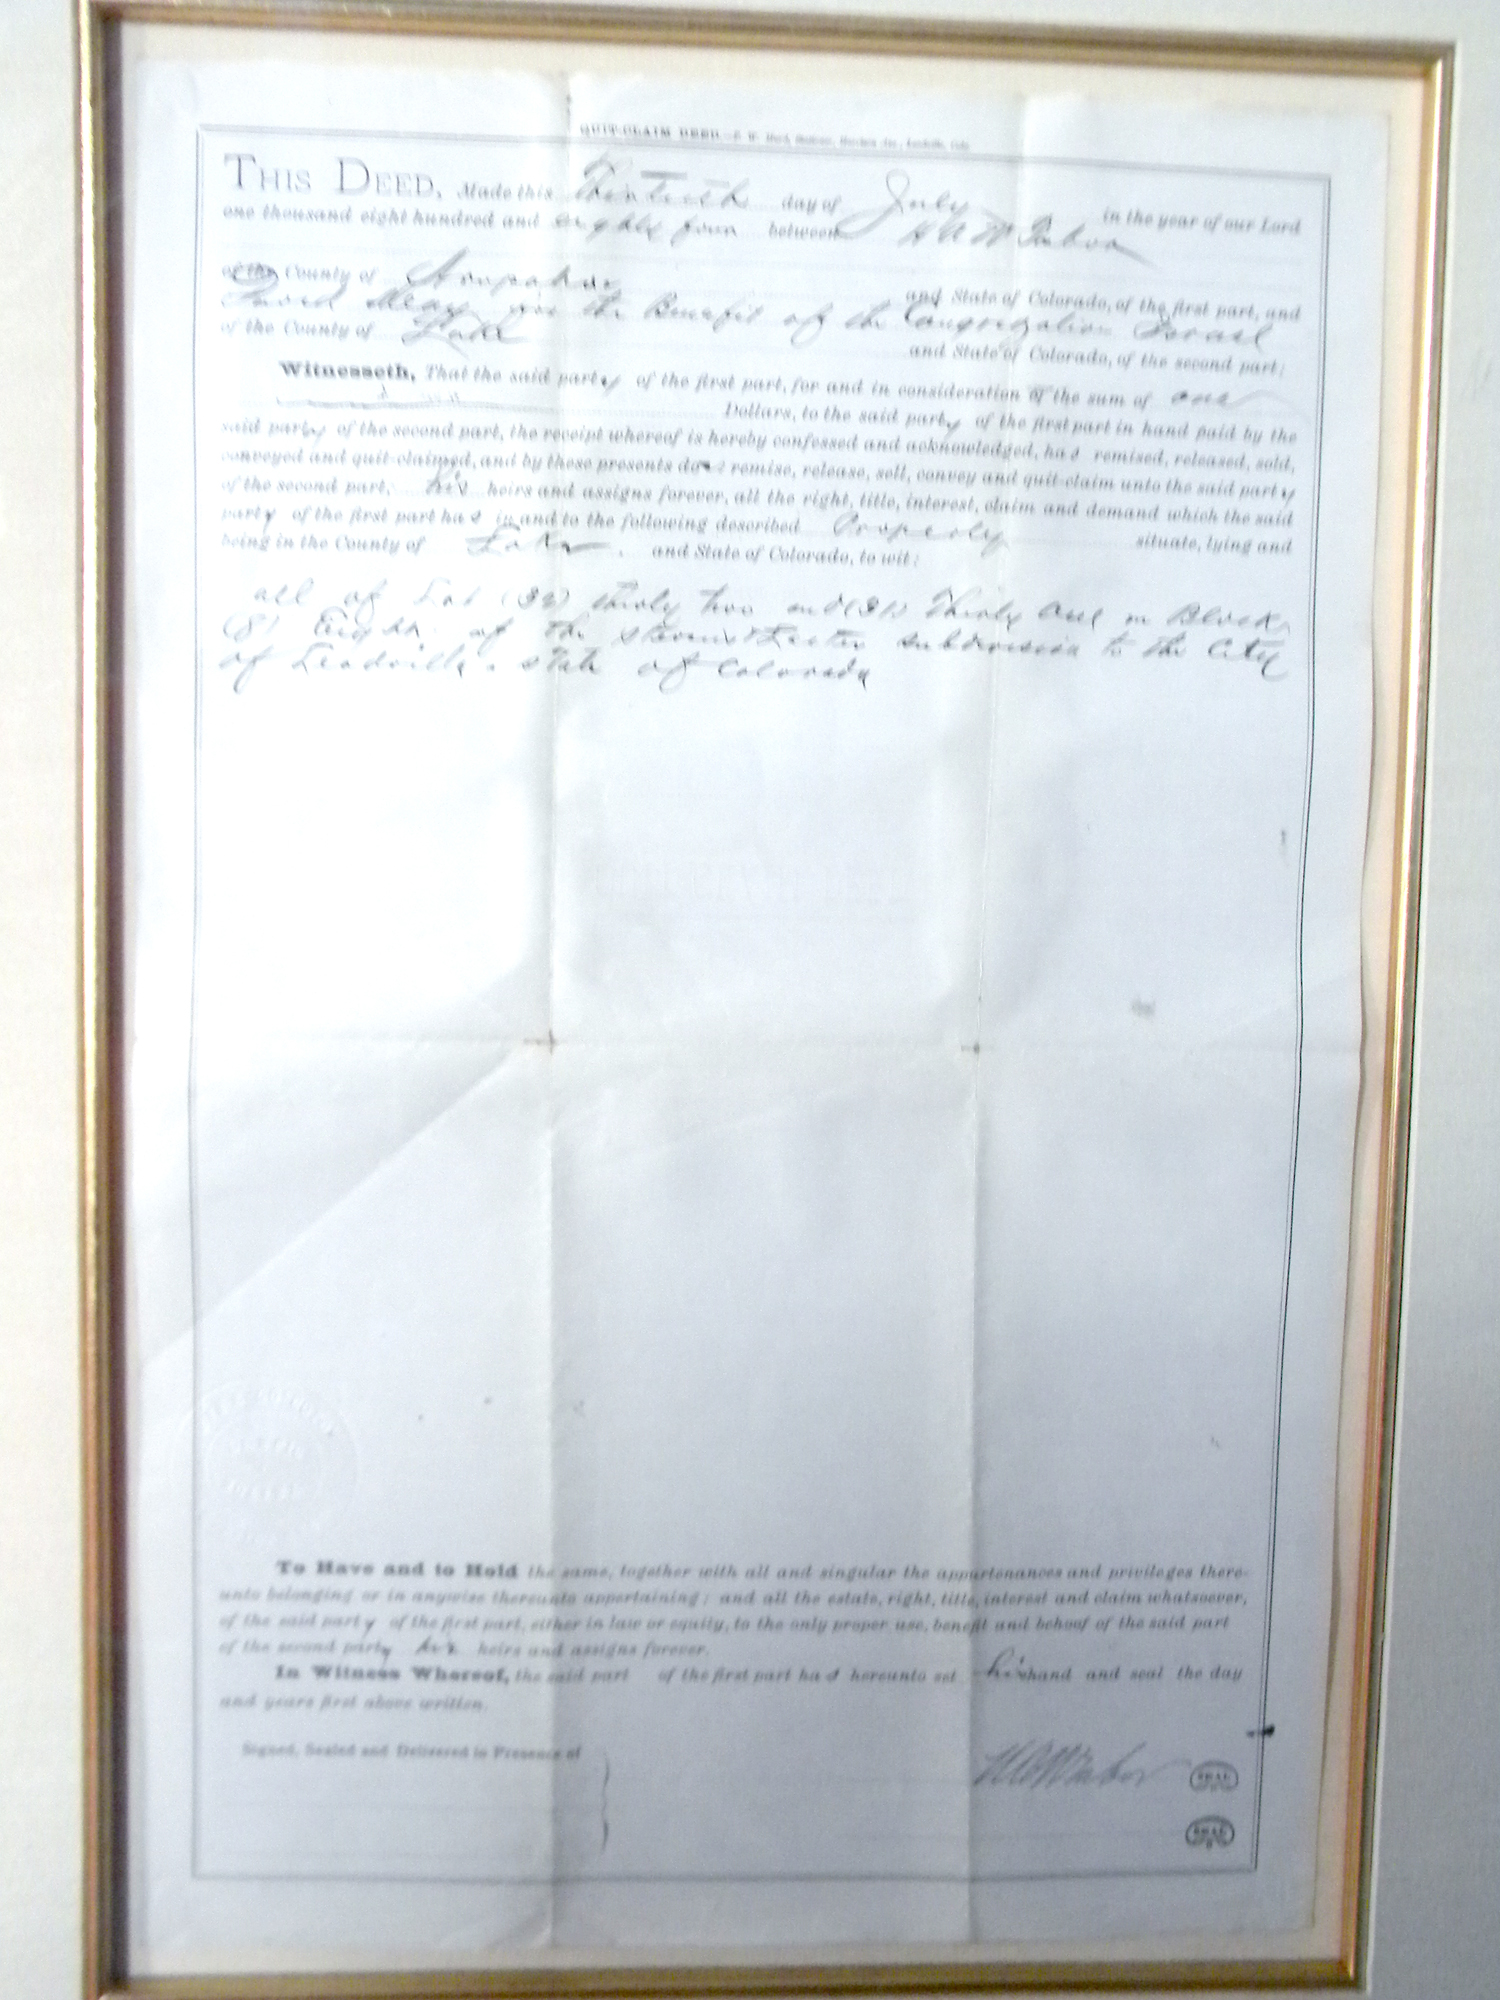 QUIT-CLAIM DEED.
THIS DEED, Made this Thirtieth day of July in the year of our Lord
one thousand eight hundred and eighty four between H A W Tabor
of the County of Arapahoe and State of Colorado, of the first part, and
David May for the Benefit of the Congregation Israel
of the County of Lake and State of Colorado, of the second part;
Witnesseth, That the said party of the first part, for and in consideration of the sum of one
Dollars, to the said party of the first part in hand paid by the
said party of the second part, the receipt whereof is hereby confessed and acknowledged, has remised, released, sold,
conveyed and quit-claimed, and by these presents does remise, release, sell, convey and quit-claim unto the said party
of the second part, his heirs and assigns forever, all the right, title, interest, claim and demand which the said
party of the first part has in and to the following described Property situate, lying and
being in the County of Lake and State of Colorado, to wit:
all of Lot (32) thirty two and (31) Thirty One in Block
(8) Eight of the Stevens & Leiter subdivision to the City
of Leadville State of Colorado
To Have and to Hold the same, together with all and singular the appurtenances and privileges there-
unto belonging or in anywise thereunto appertaining; and all the estate, right, title, interest and claim whatsoever,
of the said party of the first part, either in law or equity, to the only proper use, benefit and behoof of the said part
of the second party his heirs and assigns forever.
In Witness Whereof, the said part of the first part has hereunto set his hand and seal the day
and years first above written.
Signed, Sealed and Delivered in Presence of
H A W Tabor SEAL
SEAL